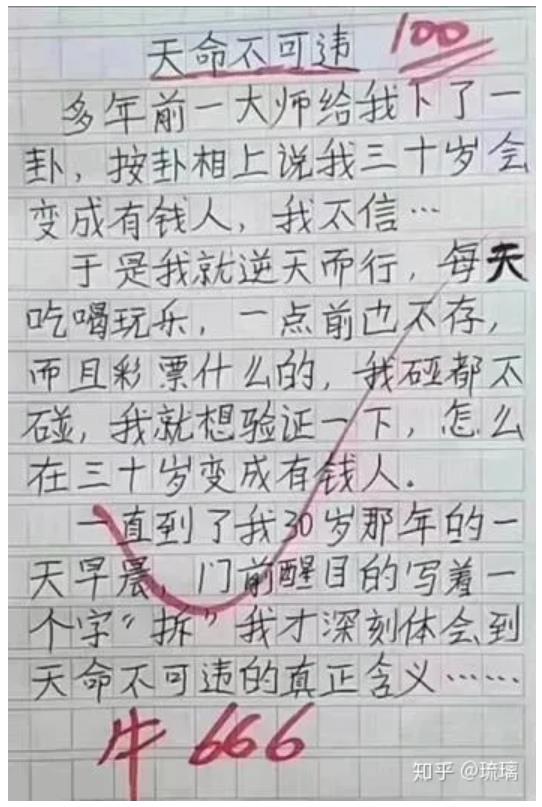 天命不可违 100
多年前一大师给我下了一
卦，按卦相上说我三十岁会
变成有钱人，我不信…
于是我就逆天而行，每天
吃喝玩乐，一点前也不存，
而且彩票什么的，我碰都不
碰，我就想验证一下，怎么
在三十岁变成有钱人.
一直到了我30岁那年的一
天早晨，门前醒目的写着一
个字“拆”我才深刻体会到
天命不可违的真正含义……
牛 666
知乎 @琉璃